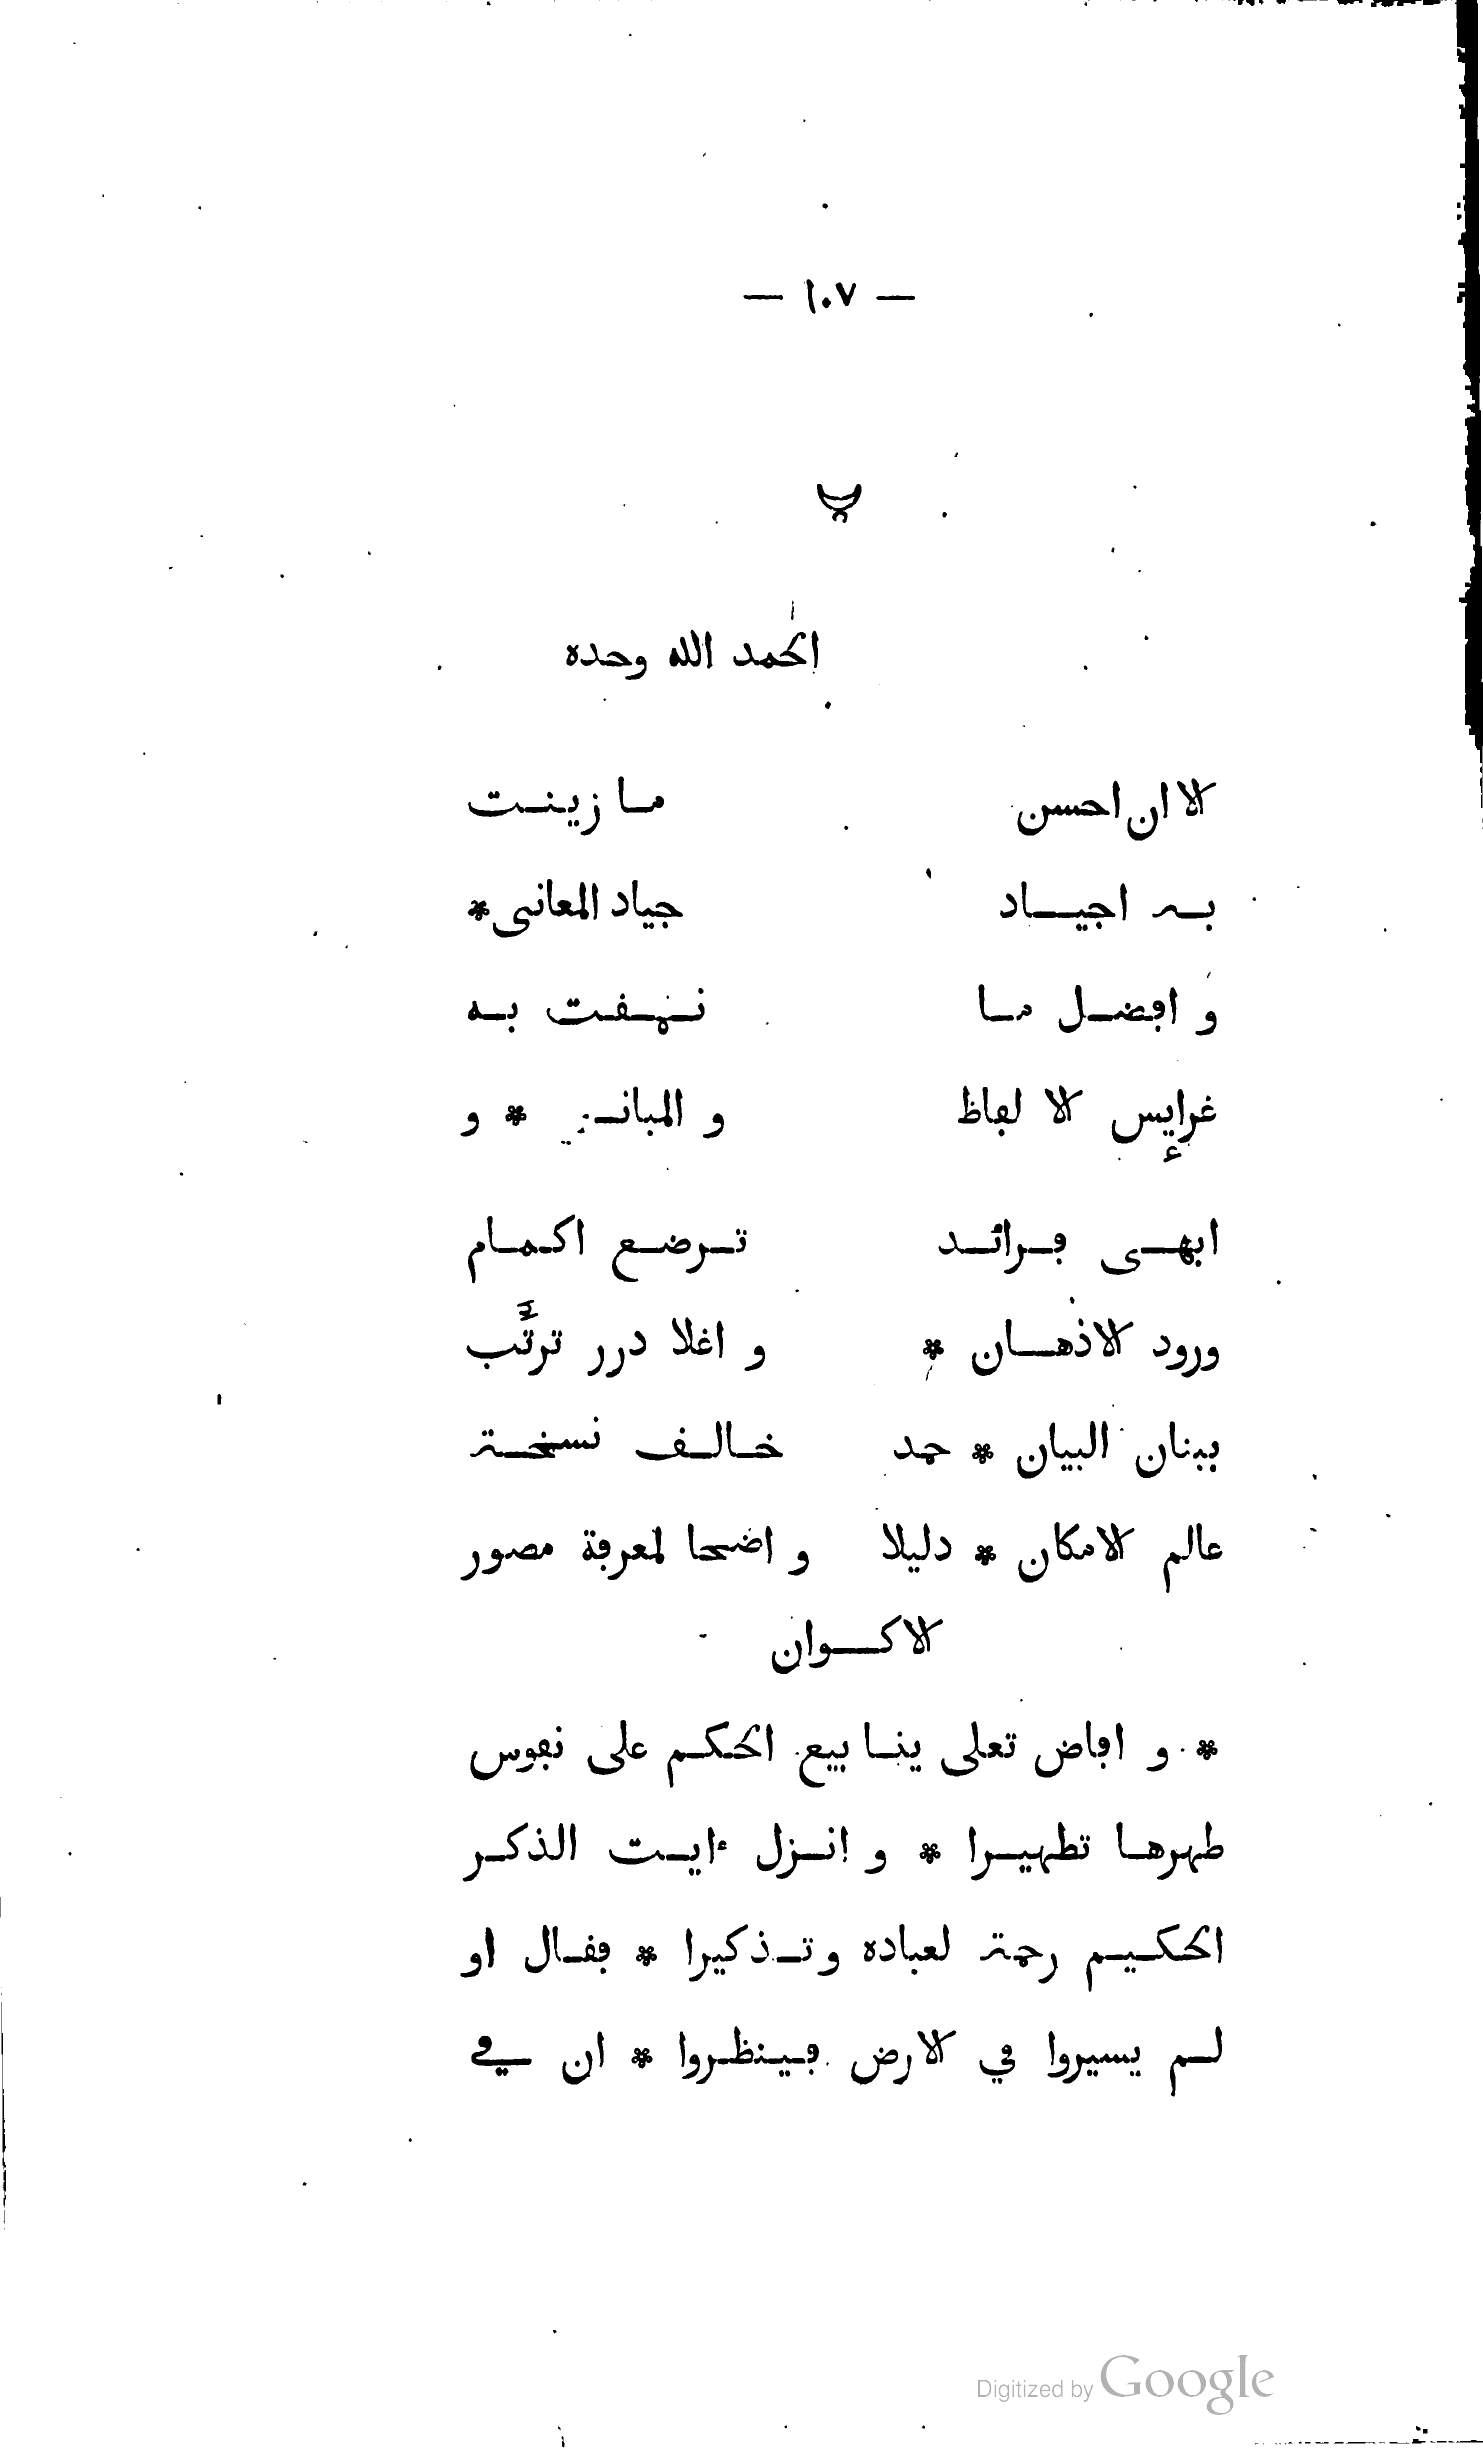 — ١٠٧ —
الحمد الله وحده
الا ان احسن ما زينت
به اجياد جياد المعانى *
و ابضل ما نمفت به
غرايس الا لفاظ و المبانـ * و
ابهى ڢرائد ترضع اكمام
ورود الاذهان * و اغلا درر ترتّب
ببنان البيان * حمد خالف نسخة
عالم الامكان * دليلا واضحا لمعرڢة مصور
الاكوان
* و اڢاض تعلى ينابيع الحكم على نڢوس
طهرها تطهيرا * و انزل ءايت الذكر
الحكيم رحمة لعباده وتذكيرا * ڢفال او
لم يسيروا ڢي الارض ڢينظروا * ان ڢي
Digitized by Google